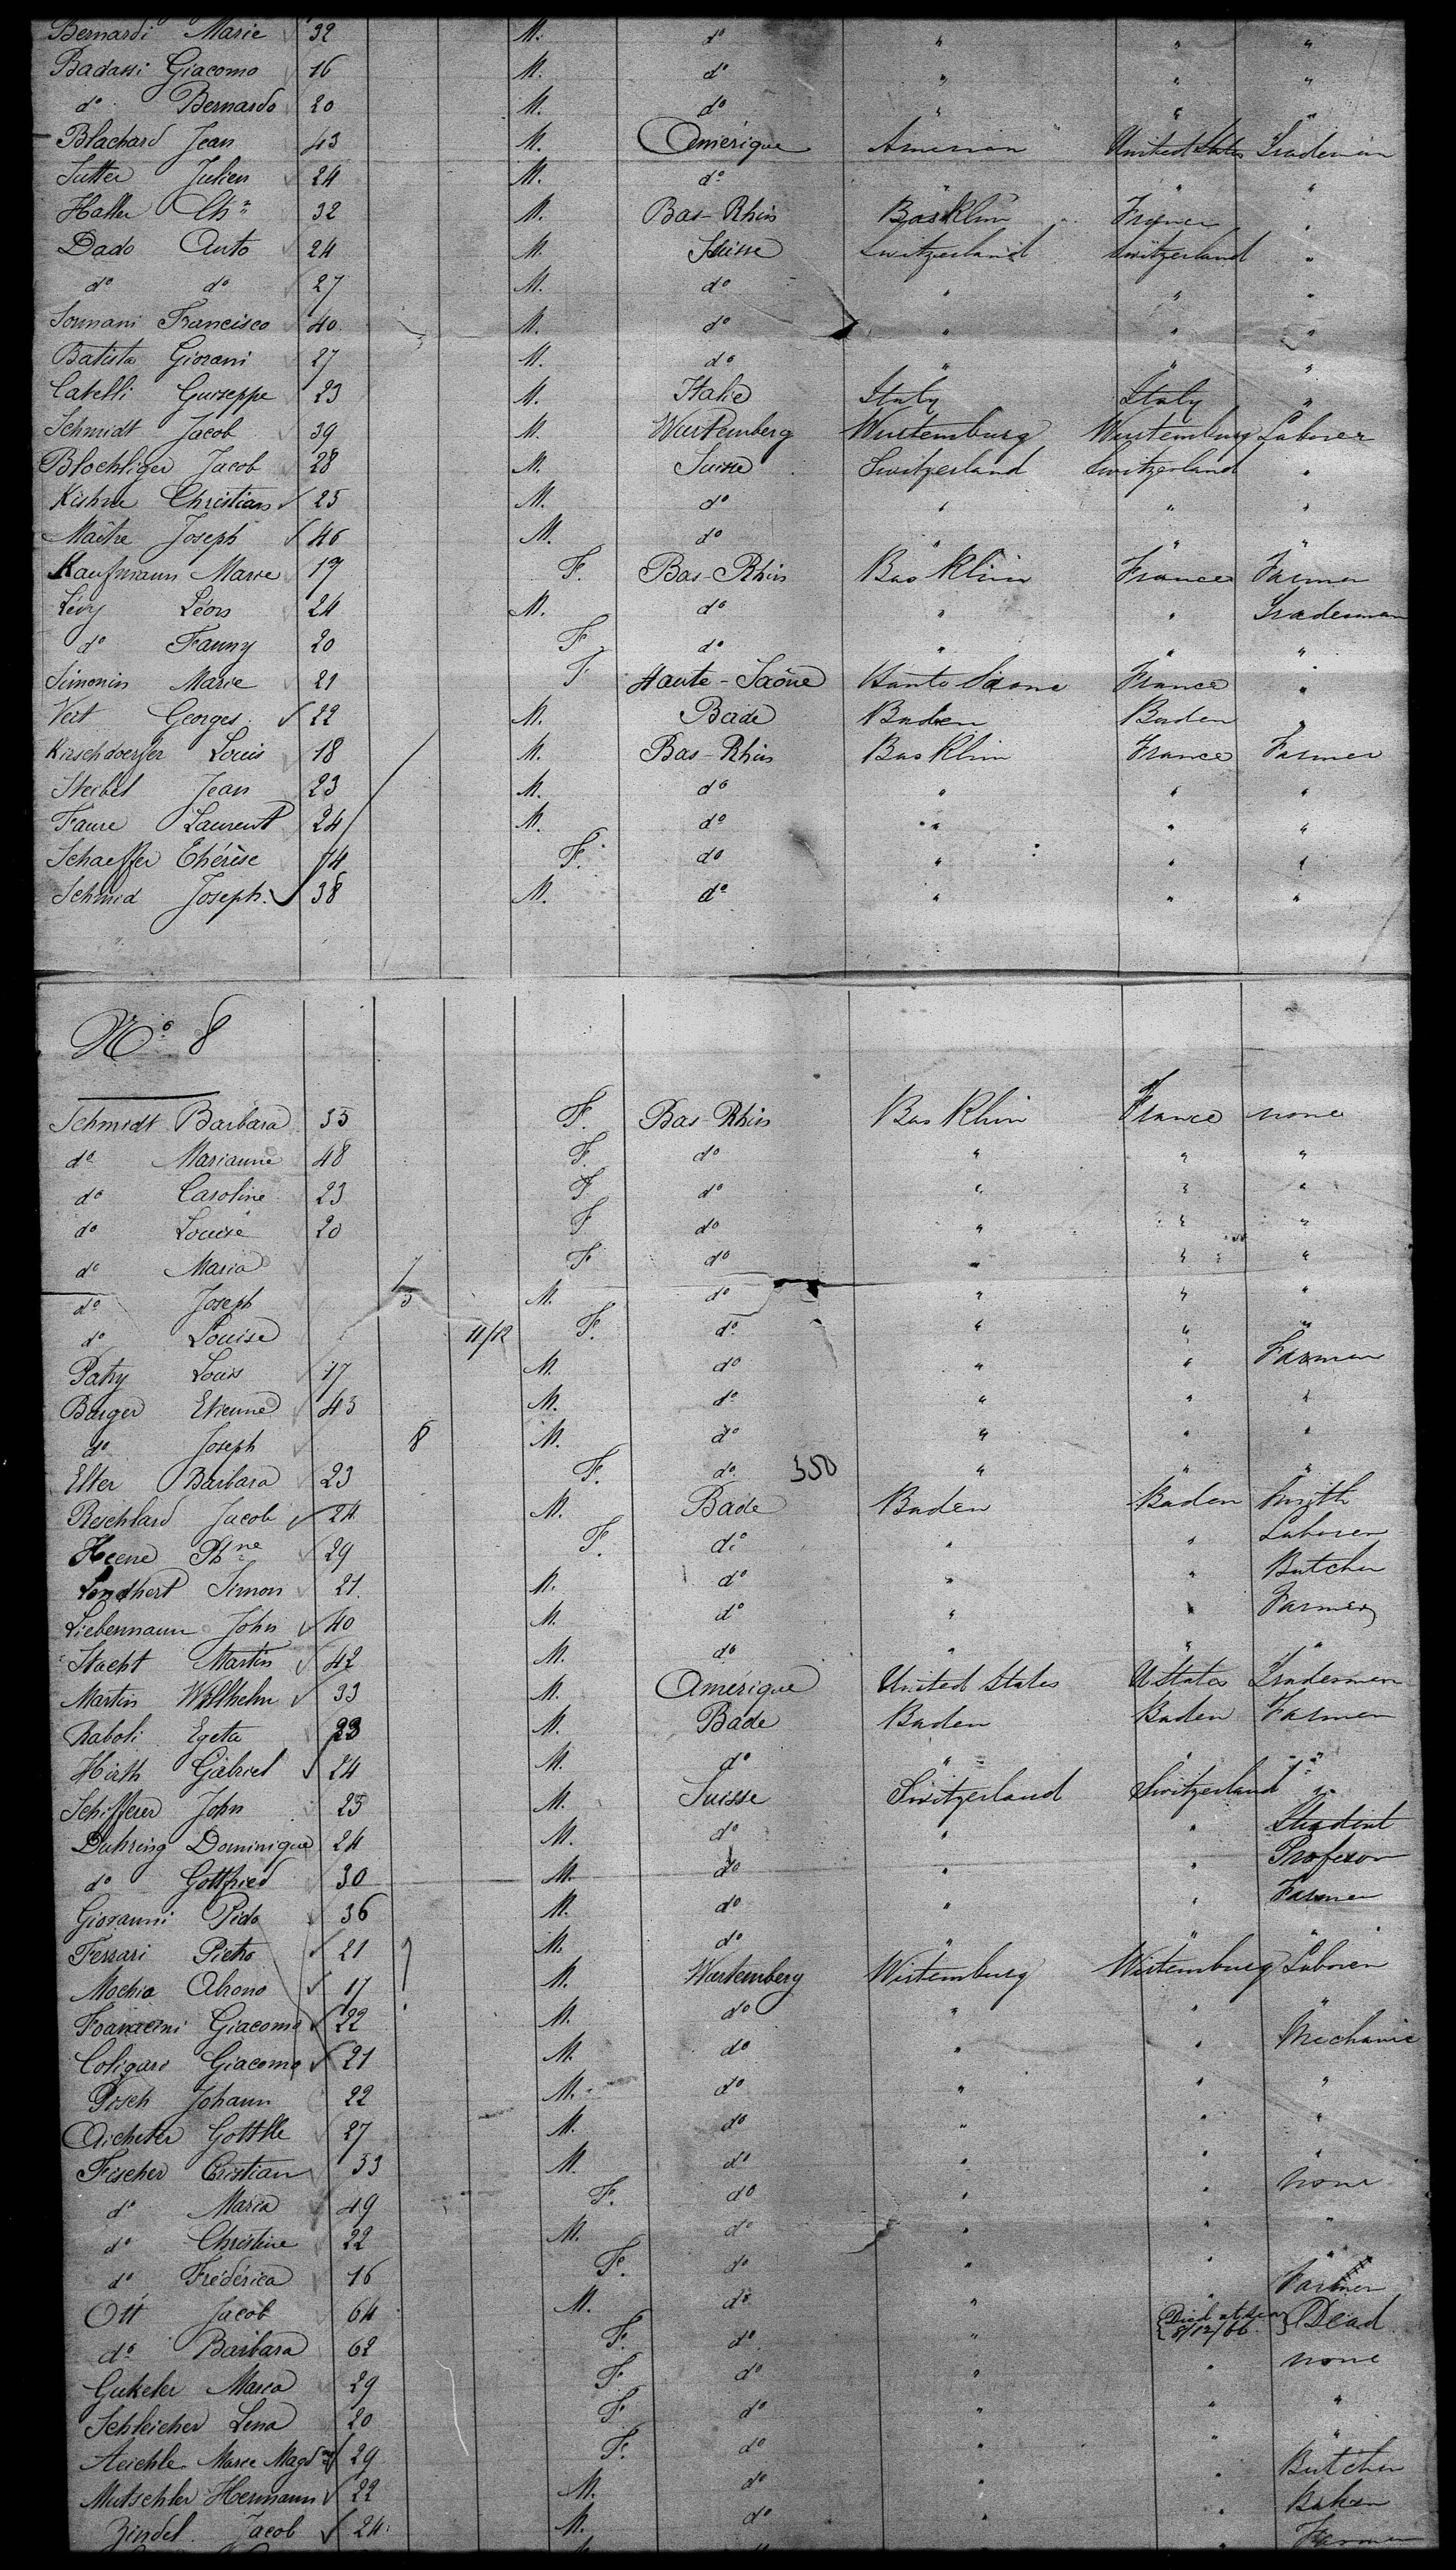 Bernardi Marie 32 M. do " " "
Badassi Giacomo 16 M. do " " "
do Bernardo 20 M. do " " "
Blachard Jean 43 M. Amérique American United States Tradesman
Sutter Julien 24 M. do " " "
Haller Chs 32 M. Bas-Rhin Bas Rhin France "
Dado Anto 24 M. Suisse Switzerland Switzerland "
do do 27 M. do " " "
Sonnani Francisco 40 M. do " " "
Batista Giovani 27 M. do " " "
Catelli Guiseppe 23 M. Italie Italy Italy "
Schmidt Jacob 39 M. Wurtemberg Wurtemburg Wurtemburg Laborer
Blochliger Jacob 28 M. Suisse Switzerland Switzerland "
Christian 25 M. do " " "
Maître Joseph 46 M. do " " "
Kaufmann Marie 17 F. Bas-Rhin Bas Rhin France Farmer
Lévy Léon 24 M. do " " Tradesman
do Fanny 20 F do " " "
Simonin Marie 21 F Haute-Saône Haute Saone France "
Veit Georges 22 M. Bade Baden Baden "
Kirschdoerfer Louis 18 M. Bas-Rhin Bas Rhin France Farmer
Steibel Jean 23 M. do " " "
Faure Laurent 24 M. do " " "
Schaeffer Thérèse 74 F. do " " "
Schmid Joseph. 38 M. do " " "
No 8
Schmidt Barbara 35 F. Bas-Rhin Bas Rhin France none
do Marianne 48 F. do " " "
do Caroline 23 F do " " "
do Louise 20 F do " " "
do Maria 7 F do " " "
do Joseph 5 M. do " " "
do Louise 11/12 F. do " " "
Patry Louis 17 M. do " " Farmer
Barger Etienne 43 M. do " " "
do Joseph 8 M. do " " "
Elter Barbara 23 F. do 350 " " "
Reichlard Jacob 24 M. Bade Baden Baden Smith
Heene Phne 29 F. do " " Laborer
Simon 21 M. do " " Butcher
Liebermann John 40 M. do " " Farmer
Stacht Martin 42 M. do " " "
Martin Willhelm 33 M. Amérique United States U States Tradesman
Raboli Egeta 23 M. Bade Baden Baden Farmer
Hirth Gabriel 24 M. do " " "
Schifferer John 23 M. Suisse Switzerland Switzerland "
Duhring Dominique 24 M. do " " Student
do Gottfried 30 M. do " " Professor
Giovanni Pido 36 M. do " " Farmer
Ferrari Pietro 21 M. do " " "
Mochia 17 M. Wurtemberg Wirtemburg Wirtemburg Laborer
Giacomo 22 M. do " " "
Coligari Giacomo 21 M. do " " Mechanic
Pisch Johann 22 M. do " " "
Aicheler Gottlle 27 M. do " " "
Fischer Cristian 33 M. do " " "
do Maria 49 F. do " " none
do Christine 22 M. do " " "
do Frédérica 16 F. do " " "
Ott Jacob 64 M. do " " Farmer
do Barbara 62 F. do " Died at Sea 8/12/66 Dead
Gukeler Maria 29 F. do " " none
Schleicher Lena 20 F do " " "
Aeichle Marie Magdne 29 F. do " " "
Mutschler Hermann 22 M. do " " Butcher
Zindel Jacob 24 M. do " " Baker
Farmer